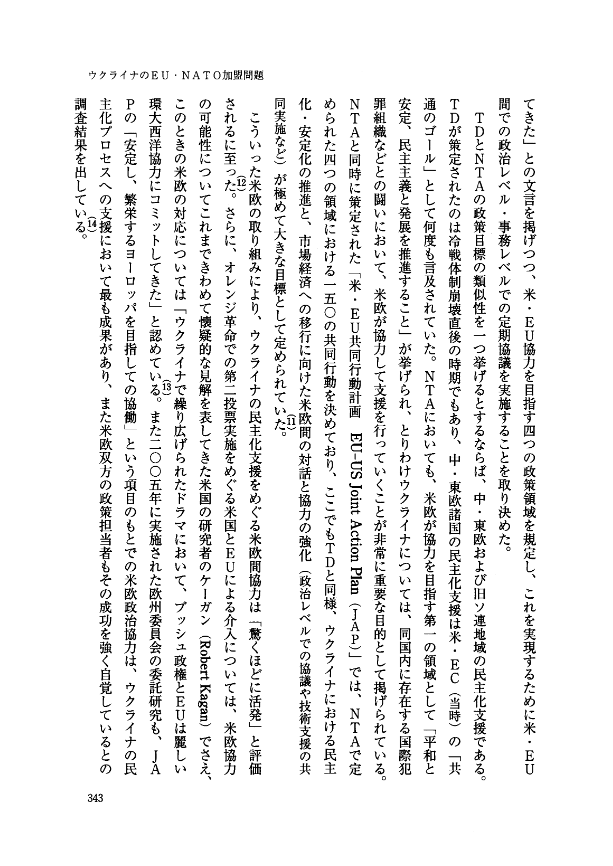 ウクライナのＥＵ・ＮＡＴＯ加盟問題
てきた」との文言を掲げつつ、米・ＥＵ協力を目指す四つの政策領域を規定し、これを実現するために米・ＥＵ
間での政治レベル・事務レベルでの定期協議を実施することを取り決めた。
　ＴＤとＮＴＡの政策目標の類似性を一つ挙げるとするならば、中・東欧および旧ソ連地域の民主化支援である。
ＴＤが策定されたのは冷戦体制崩壊直後の時期でもあり、中・東欧諸国の民主化支援は米・ＥＣ（当時）の「共
通のゴール」として何度も言及されていた。ＮＴＡにおいても、米欧が協力を目指す第一の領域として「平和と
安定、民主主義と発展を推進すること」が挙げられ、とりわけウクライナについては、同国内に存在する国際犯
罪組織などとの闘いにおいて、米欧が協力して支援を行っていくことが非常に重要な目的として掲げられている。
ＮＴＡと同時に策定された「米・ＥＵ共同行動計画　EU-US Joint Action Plan（ＪＡＰ）」では、ＮＴＡで定
められた四つの領域における一五〇の共同行動を決めており、ここでもＴＤと同様、ウクライナにおける民主
化・安定化の推進と、市場経済への移行に向けた米欧間の対話と協力の強化（政治レベルでの協議や技術支援の共
同実施など）が極めて大きな目標として定められていた。(11)
　こういった米欧の取り組みにより、ウクライナの民主化支援をめぐる米欧間協力は「驚くほどに活発」と評価
されるに至った。(12)さらに、オレンジ革命での第二投票実施をめぐる米国とＥＵによる介入については、米欧協力
の可能性についてこれまできわめて懐疑的な見解を表してきた米国の研究者のケーガン（Robert Kagan）でさえ、
このときの米欧の対応については「ウクライナで繰り広げられたドラマにおいて、ブッシュ政権とＥＵは麗しい
環大西洋協力にコミットしてきた」と認めている。(13)また二〇〇五年に実施された欧州委員会の委託研究も、ＪＡ
Ｐの「安定し、繁栄するヨーロッパを目指しての協働」という項目のもとでの米欧政治協力は、ウクライナの民
主化プロセスへの支援において最も成果があり、また米欧双方の政策担当者もその成功を強く自覚しているとの
調査結果を出している。(14)
343